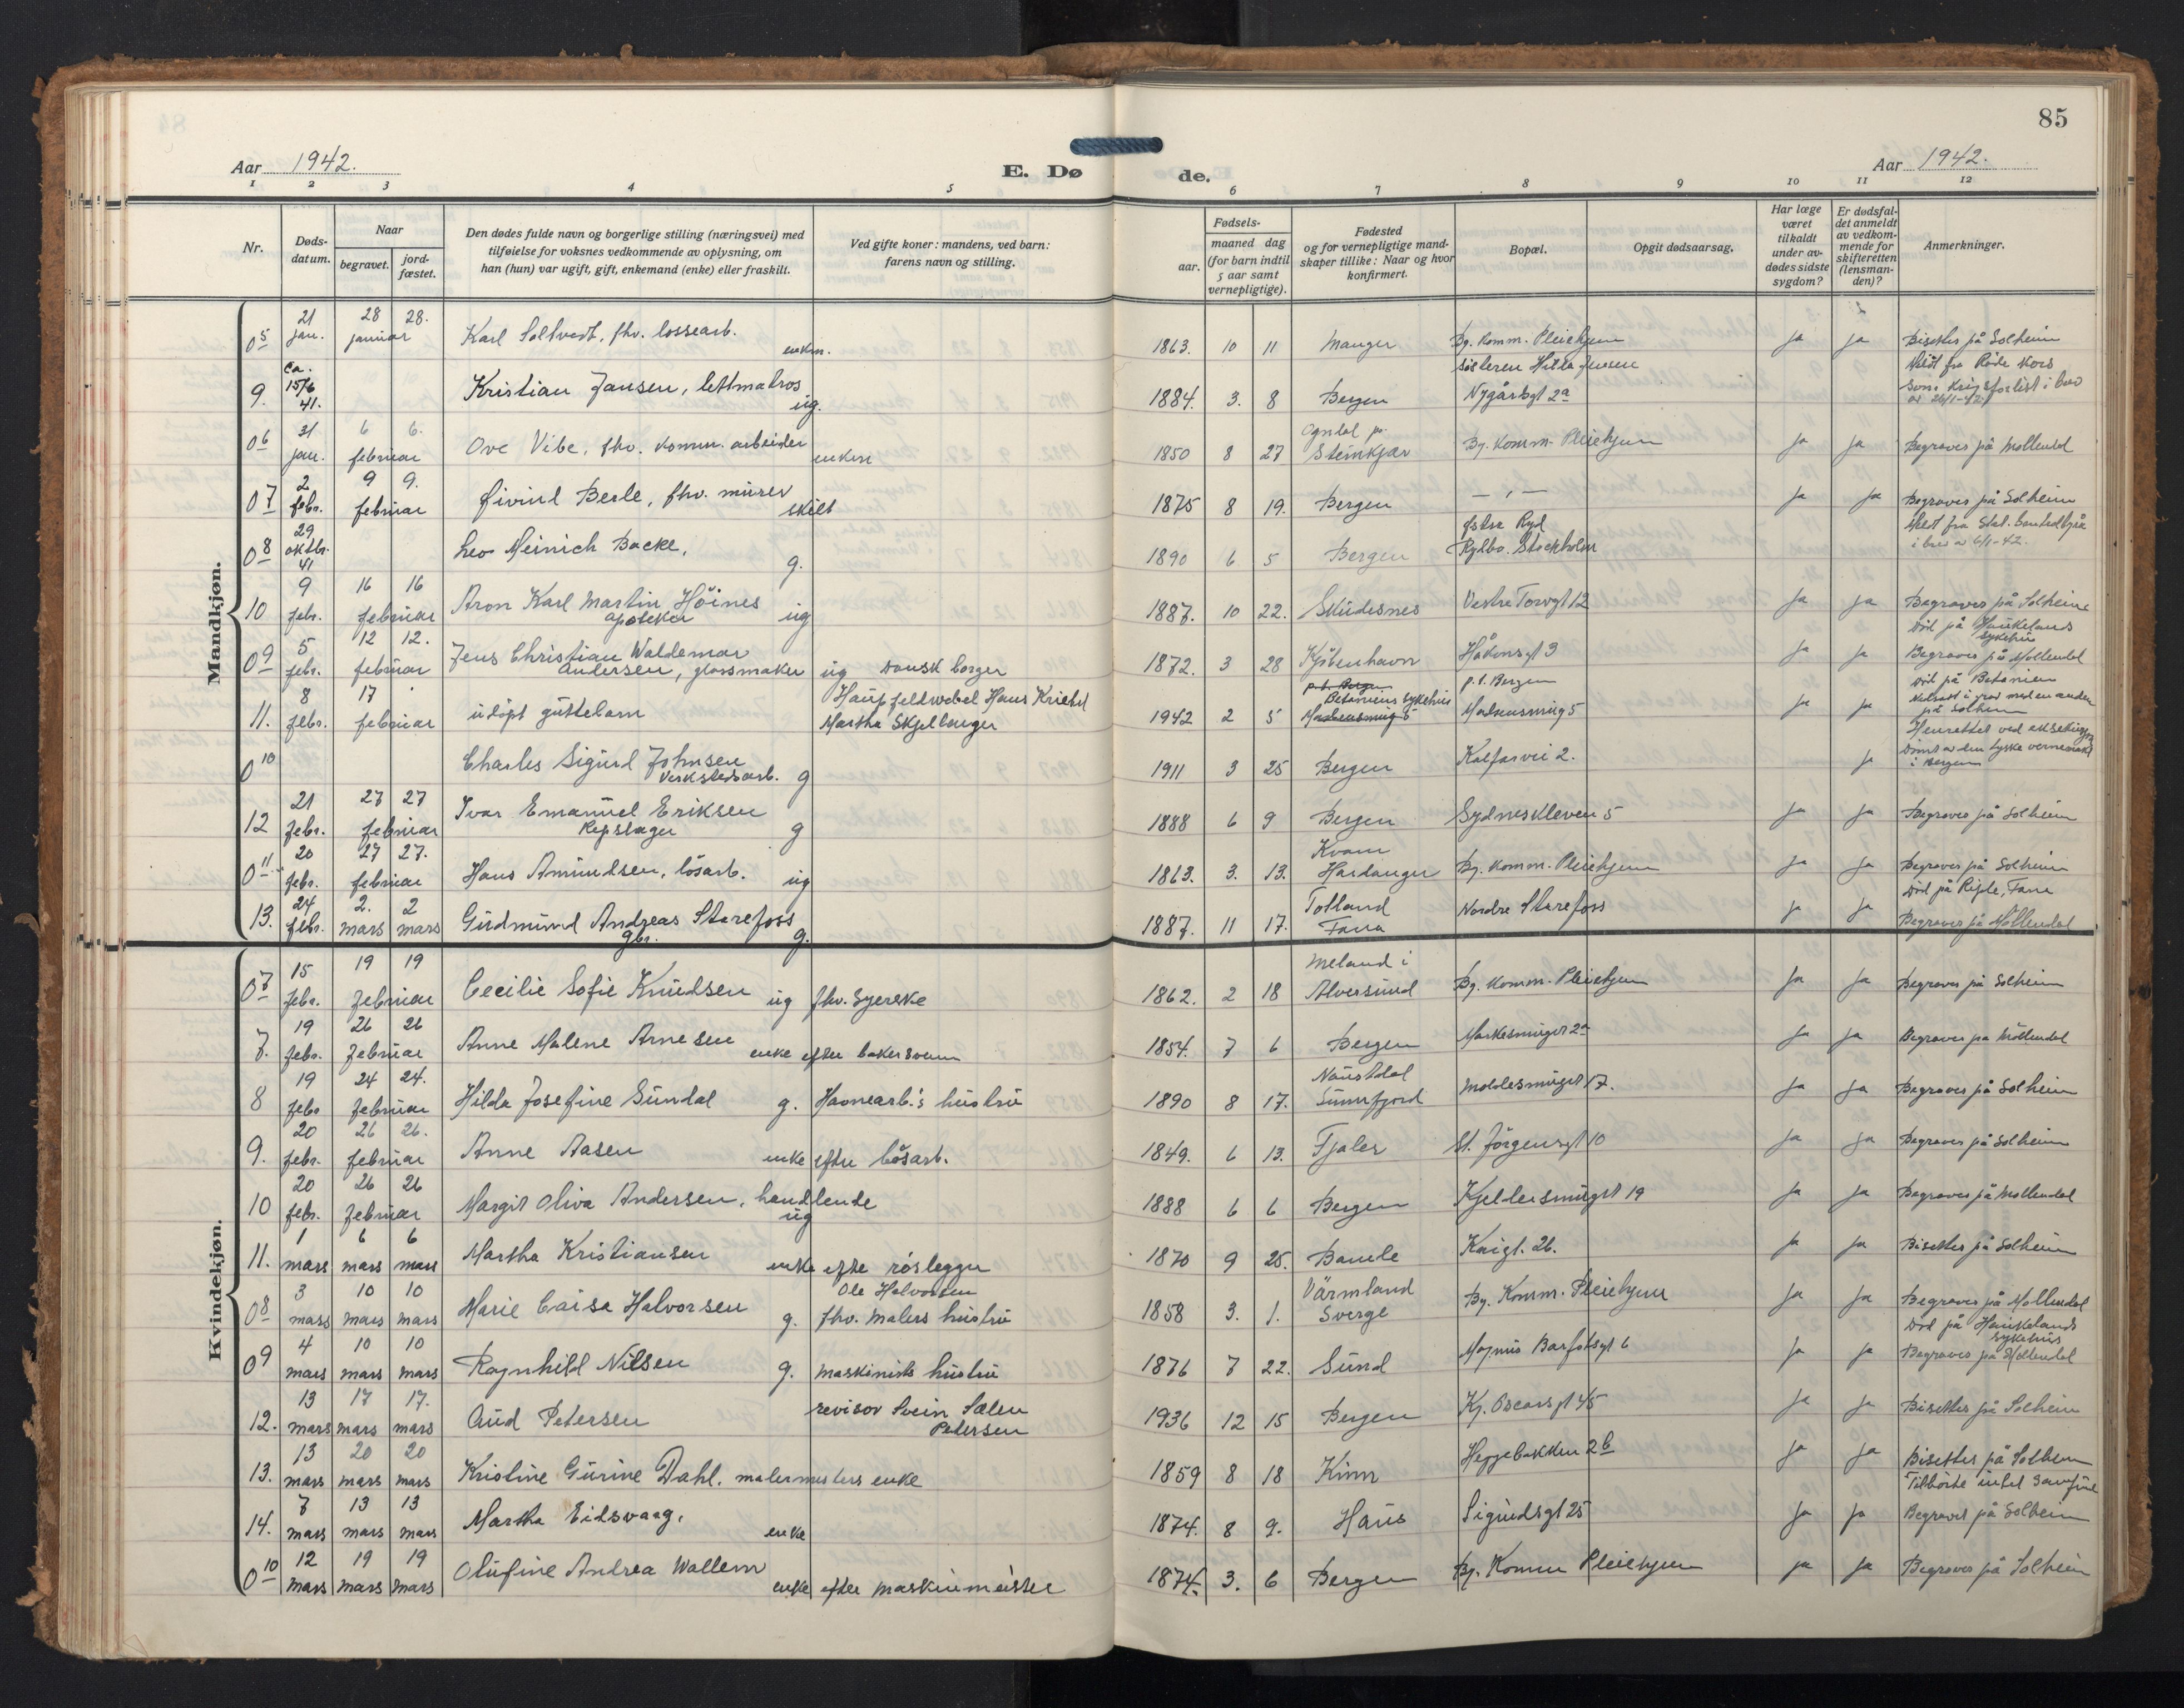 85
Aar 1942.
E. Døde.
Aar 1942.
1 2 3 4 5 6 7 8 9 10 11 12
Nr.
Døds-
datum.
Naar
begravet.
jord-
fæstet.
Den dødes fulde navn og borgerlige stilling (næringsvei) med
tilføielse for voksnes vedkommende av oplysning, om
han (hun) var ugift, gift, enkemand (enke) eller fraskilt.
Ved gifte koner: mandens, ved barn:
farens navn og stilling.
Fødsels-
aar.
maaned dag
(for barn indtil
5 aar samt
vernepligtige).
Fødested
og for vernepligtige mand-
skaper tillike: Naar og hvor
konfirmert.
Bopæl.
Opgit dødsaarsag.
Har læge
været
tilkaldt
under av-
dødes sidste
sygdom?
Er dødsfal-
det anmeldt
av vedkom-
mende for
skifteretten
(lensman-
den)?
Anmerkninger.
Mandkjøn.
05 21 jan. 28 28. januar Karl Soltvedt, fhv. lossearb. enkm. 1863. 10 11 Manger Bg. Komm. Pleiehjem ja ja Bisettes på Solheim
9. ca. 15/6 41. Kristian Jansen, lettmatros ug. 1884. 3. 8 Bergen søsteren Hilda Jensen Nygårdsgt 2a Meldt fra Røde Kors som krigsforlist i brev av 26/1-42
06 31 jan. 6 6. februar Ove Vibe, fhv. komm. arbeider enkem 1850 8 27 Ogndal pr. Steinkjær Bg. Komm. Pleiehjem ja ja Begraves på Møllendal
07 2 febr. 9 9. februar Øivind Berle, fhv. murer skilt 1875 8 19. Bergen — " — ja ja Begraves på Solheim
08 29 oktbr. 41 Leo Meinich Backe, g. 1890 6 5 Bergen Østra Ryd Rylbo. Stockholm Meldt fra Stat. Sentralbyrå i brev av 6/1-42.
10 9 febr. 16 16 februar Aron Karl Martin Höines apoteker ug 1887. 10 22. Skudesnes Vestre Torvgt 12 ja ja Begraves på Solheim
09 5 febr. 12 12. februar Jens Christian Waldemar Andersen, glassmaker ug Dansk borger 1872. 3 28 Kjøbenhavn Håkonsgt 3 ja ja Død på Haukelands sykehus Begraves på Møllendal
11. 8 febr. 17 februar udöpt guttebarn Haupfeldwebel Hans Kriehel Martha Skjellanger 1942 2 5 p.t. Bergen Betaniens Sykehus Madsensmug 5 p.t. Bergen Madsensmug 5 ja ja Død på Betanien Nedsatt i grav med en anden på Solheim
010 Charles Sigurd Johnsen verkstedsarb. g 1911 3 25 Bergen Kalfarvei 2. ja Henrettet ved eksekusjon dömt av den tyske vernemakt i Bergen
12 21 febr. 27 27 februar Ivar Emanuel Eriksen Repslager g 1888 6 9 Bergen Sydneskleven 5 ja ja Begraves på Solheim
011 20 febr. 27 27. februar Hans Amundsen, lösarb. ug 1863. 3. 13. Kvam Hardanger Bg. Komm. Pleiehjem ja ja Begraves på Solheim
13. 24 febr. 2. 2 mars mars Gudmund Andreas Starefoss gbr. g. 1887. 11 17. Totland Fana Nordre Starefoss ja ja Død på Riple, Fana Begraves på Møllendal
Kvindekjøn.
07 15 febr. 19 19 februar Cecilie Sofie Knudsen ug fhv. Syerske 1862. 2 18 Meland i Alversund Bg. Komm. Pleiehjem ja ja Begraves på Solheim
7. 19 febr. 26 26 februar Anne Malene Arnesen enke efter bakersvenn 1854. 7 6 Bergen Markesmuget 2a ja ja Begraves på Møllendal
8 19 febr 24 24. februar Hilda Josefine Sundal g. Havnearb.'s hustru 1890 8 17. Naustdal Sunnfjord Moldesmuget 17. ja ja Begraves på Solheim
9. 20 febr. 26 26. februar Anne Aasen enke efter løsarb. 1849. 6 13. Fjaler St. Jörgensgt 10 ja ja Begraves på Solheim
10 20 febr. 26 26 februar Margit Oliva Andersen, handlende ug 1888 6 6 Bergen Kjellersmuget 19 ja ja Begraves på Møllendal
11. 1 mars 6 6 mars mars Martha Kristiansen enke efter rörlegger 1870 9 25. Bamle Kaigt. 26. ja ja Bisettes på Solheim
08 3 mars 10 10 mars mars Marie Caisa Halvorsen g. Ole Halvorsen fhv. malers hustru 1858 3. 1. Värmland Sverge Bg. Komm. Pleiehjem ja ja Begraves på Møllendal
09 4 mars 10 10 mars mars Ragnhild Nilsen g. maskinists hustru 1876 7 22. Sund Magnus Barfotsgt 6 ja ja Død på Haukelands sykehus Begraves på Møllendal
12. 13 mars 17 17. mars mars Aud Petersen revisor Svein Sælen Petersen 1936 12 15 Bergen Kg. Oscarsgt 45 ja ja Bisettes på Solheim
13. 13 mars 20 20 mars mars Kristine Gurine Dahl. malermesters enke 1859 8 18 Kinn Heggebakken 2b ja ja Bisettes på Solheim
14. 7 mars 13 13 mars mars Martha Eidsvaag. enke 1874. 8 9. Haus Sigurdsgt 25 ja ja Tilhörte intet samfund Begravet på Solheim
010 12 mars 19 19 mars mars Olufine Andrea Wallem enke efter maskinmeister 1874. 3. 6 Bergen Bg. Komm Pleiehjem ja ja Begraves på Solheim